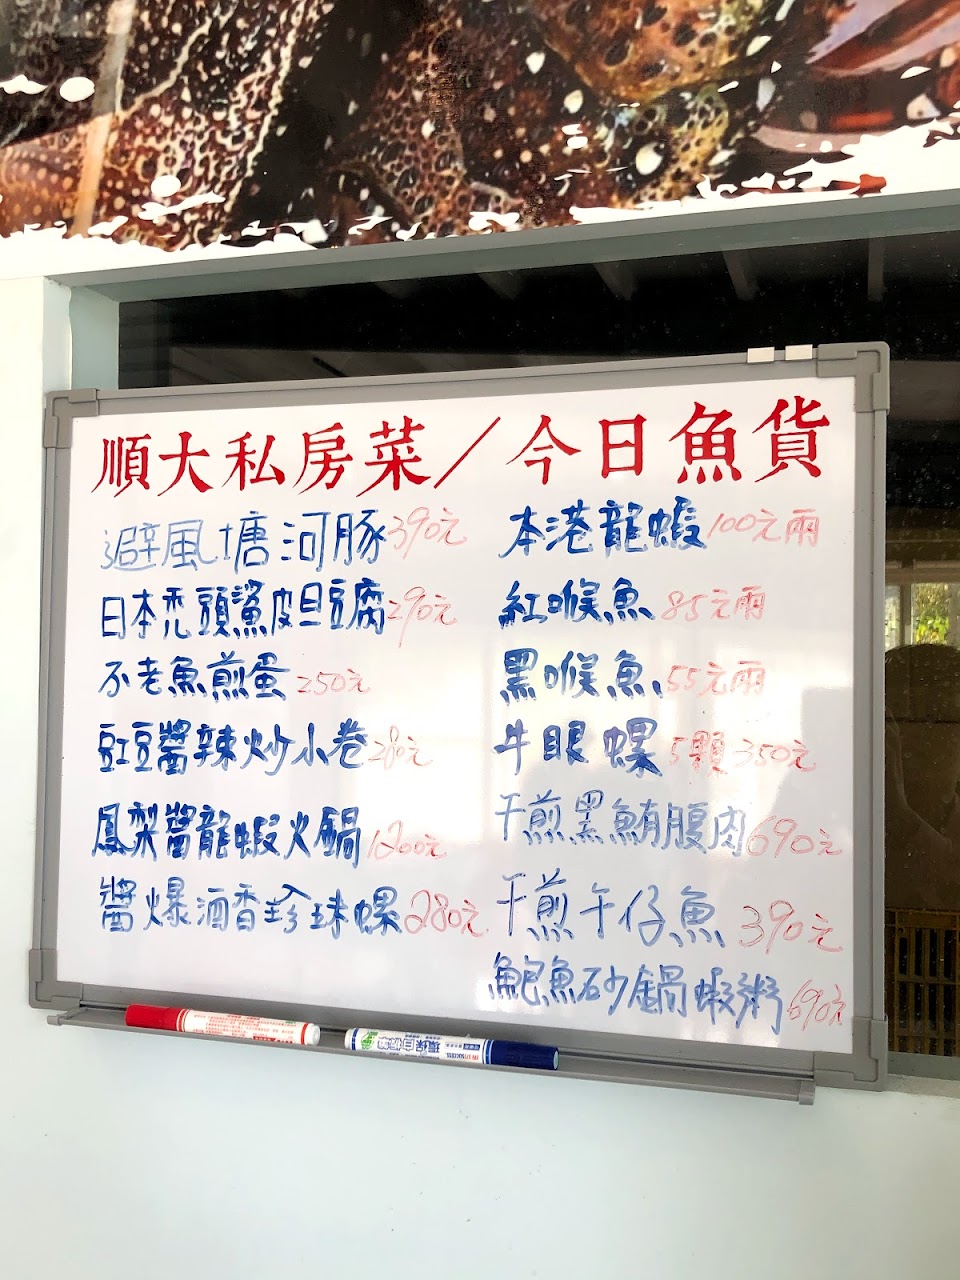 順大私房菜／今日魚貨
避風塘河豚390元
日本禿頭鯊皮旦豆腐290元
不老魚煎蛋250元
豇豆醬辣炒小卷280元
鳳梨醬龍蝦火鍋1200元
醬爆酒香珍珠螺280元
本港龍蝦100元兩
紅喉魚85元兩
黑喉魚55元兩
牛眼螺5顆350元
干煎黑鮪腹肉690元
干煎午仔魚390元
鮑魚砂鍋蝦粥690元
環保白板筆